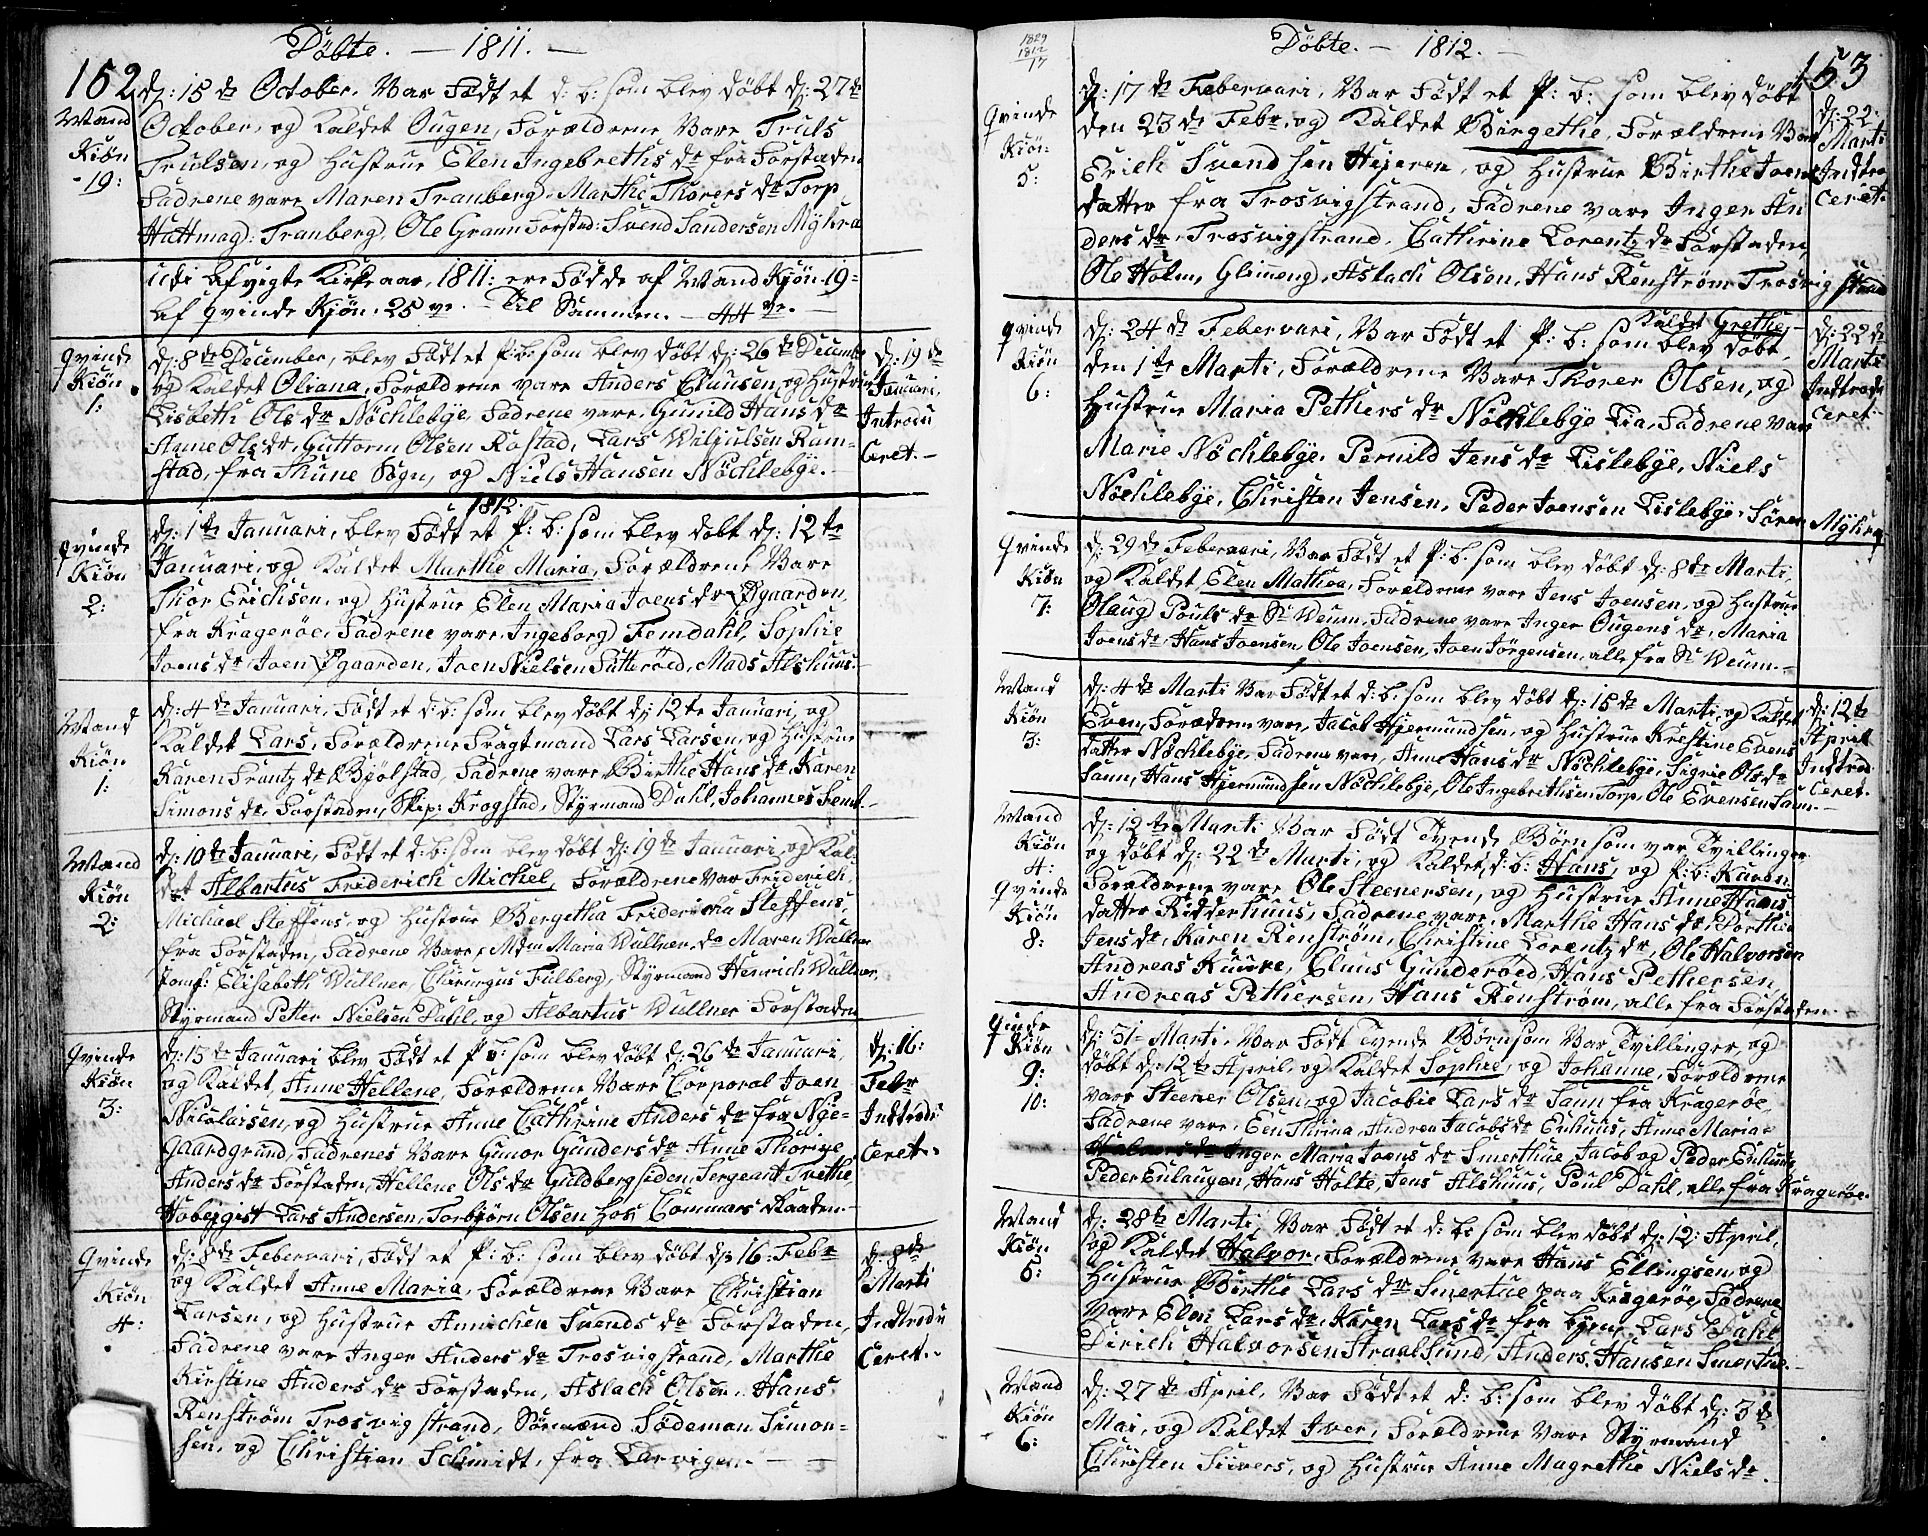 Döbte. — 1811. —
152
Mand
Kiön
19:
dj: 15 de October, Var Födt et d: b: som blev döbt dj: 27de
October, og Kaldet Ougen, Forældrene Vare Truls
Trulsen, og Hustrue Elen Ingebreths dr fra Forstaden
Fadrene vare Maren Tranberg, Marthe Thorers dr Torp,
Hattmag: Tranberg, Ole Graun Forstad: Svend Sandersen Myhra
udi Afvigte Kirkeaar, 1811: ere Födde af Mand Kiön 19=
Af qvinde Kiön, 25 ve. Til Sammen. — 44 ve. —
qvinde
Kiön
1:
dj: 8de December, blev Födt et P: b: som blev döbt dj: 26de Decembr
og Kaldet Oliana, Forældrene vare Anders Clausen, og Hustrue
Lisbeth Ols dr Nöchlebÿe, Fadrene vare, Gunild Hans dr
Anne Ols dr, Guttorm Olsen Rostad, Lars Wiljulsen Rom-
stad, fra Thune Sogn, og Niels Hansen Nöchlebÿe. —
dj: 19 de
Januari,
Introdu
Ceret. —
1812
qvinde
Kiön
2:
dj: 1te Januari, blev Födt et P: b: som blev döbt dj: 12 te
Januari, og Kaldet Marthe Maria, Forældrene Vare
Thor Erichsen, og Hustrue Elen Maria Joens dr Øgaarden,
fra Kragerøe, Fadrene vare, Ingeborg Femdahl, Sophie
Joens dr Joen Øgaarden, Joen Nielsen Sutteröed, Mads Alshuus. —
Mand
Kiön
1:
dj: 4 de Januari, Födt et d: b: som blev döbt dj: 12te Januari, og
Kaldet Lars, Forældrene Fragtmand Lars Larsen, og Hustrue
Karen Frantz dr Bjölstad, Fadrene vare Birthe Hans dr, Karen
Simons dr, Forstaden, Skip: Krogstad, Styrmand Dahl, Johannes
Mand
Kiön
2:
dj: 10 de Januari, Födt et d: b: som blev döbt dj: 19 de Januari, og Kal-
det Albartus Friderich Michel, Forældrene Var Friderich
Michael Steffens, og Hustrue Bergetha Fridericha Steffens,
fra Forstaden, Fadrene Vare, Mdm Maria Wullner, do Maren Wullner
Jomf: Elisabeth Wullner, Chirurgus Fulberg, Styrmand Henrich Wullner,
Styrmand Petter Nielsen Dahl, og Albartus Wullner Forstaden
qvinde
Kiön
3:
dj: 15 de Januari blev Födt et P b: som blev döbt dj: 26 de Januari,
og Kaldet, Anne Hellene, Forældrene Vare Corporal Joen
Nicolaisen, og Hustrue Anne Cathrine Anders dr fra Nÿe-
gaardgrund, Fadrenes Vare Gunor Gunders dr Anne Thorine
Anders dr Forstaden, Hellene Ols dr Guldbergsiden, Sergeant Tvethe,
Hobergist Lars Andersen, Torbjörn Olsen hos Commars Staaden. —
dj: 16:
Febr
Indtrodu
Ceret. —
Qvinde
Kiön
4:
dj: 8de Februari, Födt et P: b: som blev döbt dj: 16. Febr
og Kaldet Anne Maria, Forældrene Vare Christian
Larsen, og Hustrue Annichen Svends dr Forstaden,
Fadrene vare Inger Anders dr Trosvigstrand, Marthe
Kirstine Anders dr Forstaden, Aslach Olsen, Hans
Renström Trosvigstrand, Sörmænd Södeman Simon-
sen, og Christian Schmidt, fra Larvigen — —
dj: 8de
Marti
Indtrodu
Ceret. —
Döbte. — 1812. —
1829
1812
17
153
qvinde
Kiön
5:
dj: 17 de Februari, Var Födt et P: b: som blev döbt
den 23 de Febr, og Kaldet Birgethe, Forældrene Var
Erich Svendsen Hejeren, og Hustrue Birthe Joens
datter fra Trosvigstrand, Fadrene vare Inger An
ders dr, Trosvigstrand, Cathrine Lorentz dr Forstaden,
Ole Holm, Glimeng, Aslach Olsen, Hans Renström Trosvig strand
dj: 22:
Marti
Indtro
Ceret
qvinde
Kiön
6:
kaldet Grethe,
dj: 24 de Februari, Var Födt et P: b: som blev döbt,
den 1te Marti, Forældrene Vare Thorer Olsen, og
Hustrue Maria Pethers dr Nöchlebÿe Lia, Fadrene var
Marie Nöchlebÿe, Pernild Jens dr Lislebÿe, Niels
Nöchlebÿe, Christen Jensen, Peder Joensen Lislebÿe, Sören Mÿhra
dj: 22 de
Marti
Indtrodu
Ceret. —
Qvinde
Kiön
7:
dj: 29 de Februari, Var Födt et P: b. som blev döbt dj: 8de Marti,
og Kaldet, Elen Mathea, Forældrene vare Jens Joensen, og Hustrue
Olaug Pouls dr St Weum, Fadrene vare Inger Ougens dr, Maria
Joens dr, Hans Joensen, Ole Joensen, Joen Jörgensen, alle fra St Weum. —
Mand
Kiön
3:
dj: 4 de Marti Var Födt et d: b. som blev döbt dj: 15de Marti, og Kaldet
Even, Forældrene vare, Jacob Hjermundsen, og Hustrue Krestine Evens
datter Nöchlebÿe, Fadrene vare, Anne Hans dr Nöchlebÿe, Sigrie Ols dr
Saun, Hans Hjermundsen Nöchlebÿe, Ole Ingebrethsen Torp, Ole Evensen Saun. —
dj: 12te
April
Indtrod
Ceret. —
Mand
Kiön
4:
qvinde
Kiön
8:
dj: 12te Marti Var Födt Tvende Börn som var Tvillinger
og döbt dj: 22 de Marti, og Kaldet, d: b: Hans, og P: b: Karen
Forældrene vare Ole Steenersen, og Hustrue Anne Hans
datter Ridderhuus, Fadrene vare, Marthe Hans dr, Dorthea
Jens dr, Karen Renström, Christine Lorentz dr, Ole Halvorsen
Andreas Kuure, Cluus Gunderöed, Hans Pethersen,
Andreas Pethersen, Hans Renström, alle fra Forstaden. —
qvinde
Kiön
9:
10:
dj: 31- Marti, Var Födt Tvende Börn som Var Tvillinger, og
döbt dj: 12 te April, og Kaldet Sophie, og Johanne, Forældrene
vare Steener Olsen, og Jacobie Lars dr Saun fra Kragerøe,
Fadrene vare, Een Thrina, Andrea Jacobs dr Enhuus, Anne Maria-
Inger Maria Joens dr Smerthue, Jacob og Peder Enhuus,
Peder Enhaugen, Hans Holte, Jens Alshuus, Poul Dahl, alle fra Kragerøe.
Mand
Kiön
5:
dj: 28de Marti, Var Födt et d: b: som blev döbt dj: 12: April,
og Kaldet Halvor, Forældrene vare Hans Ellingsen, og
Hustrue Birthe Lars dr Smertue paa Kragerøe, Fadrene
Vare Elen Lars dr, Karen Lars dr fra bÿen, Lars Dahl
Dirich Halvorsen Straalsund, Anders Hansen Smertue —
Mand
Kiön
6:
dj: 27 de April, Var Födt et d: b: som blev döbt dj: 3 de
Mai, og Kaldet Iver, Forældrene Vare Styrmand
Christen Siivers, og Hustrue Anne Magrethe Niels dr.